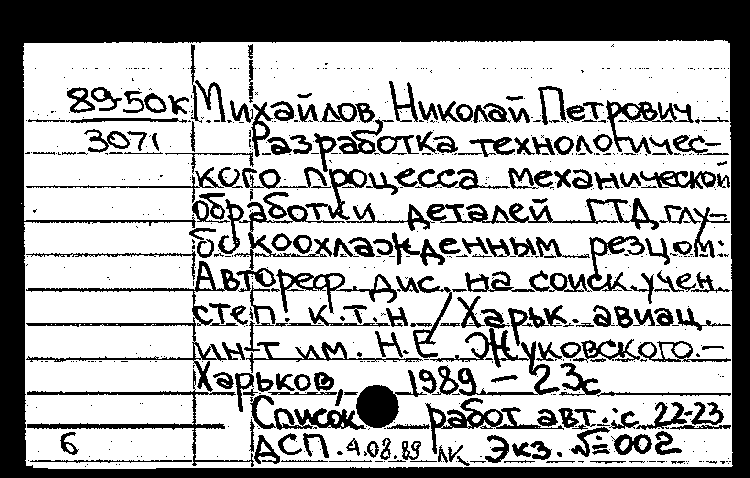 89-50к Михайлов, Николай Петрович
3071 Разработка технологичес-
кого процесса механической
обработки деталей ГТД глу-
бокоохлажденным резцом:
Автореф. дис. на соиск. учен.
степ. к.т.н. / Харьк. авиац.
ин-т им. Н.Е. Жуковского.-
Харьков, 1989. - 23с.
Список работ авт.: с 22-23
6 ДСП. 4.08.89 лк Экз. №002